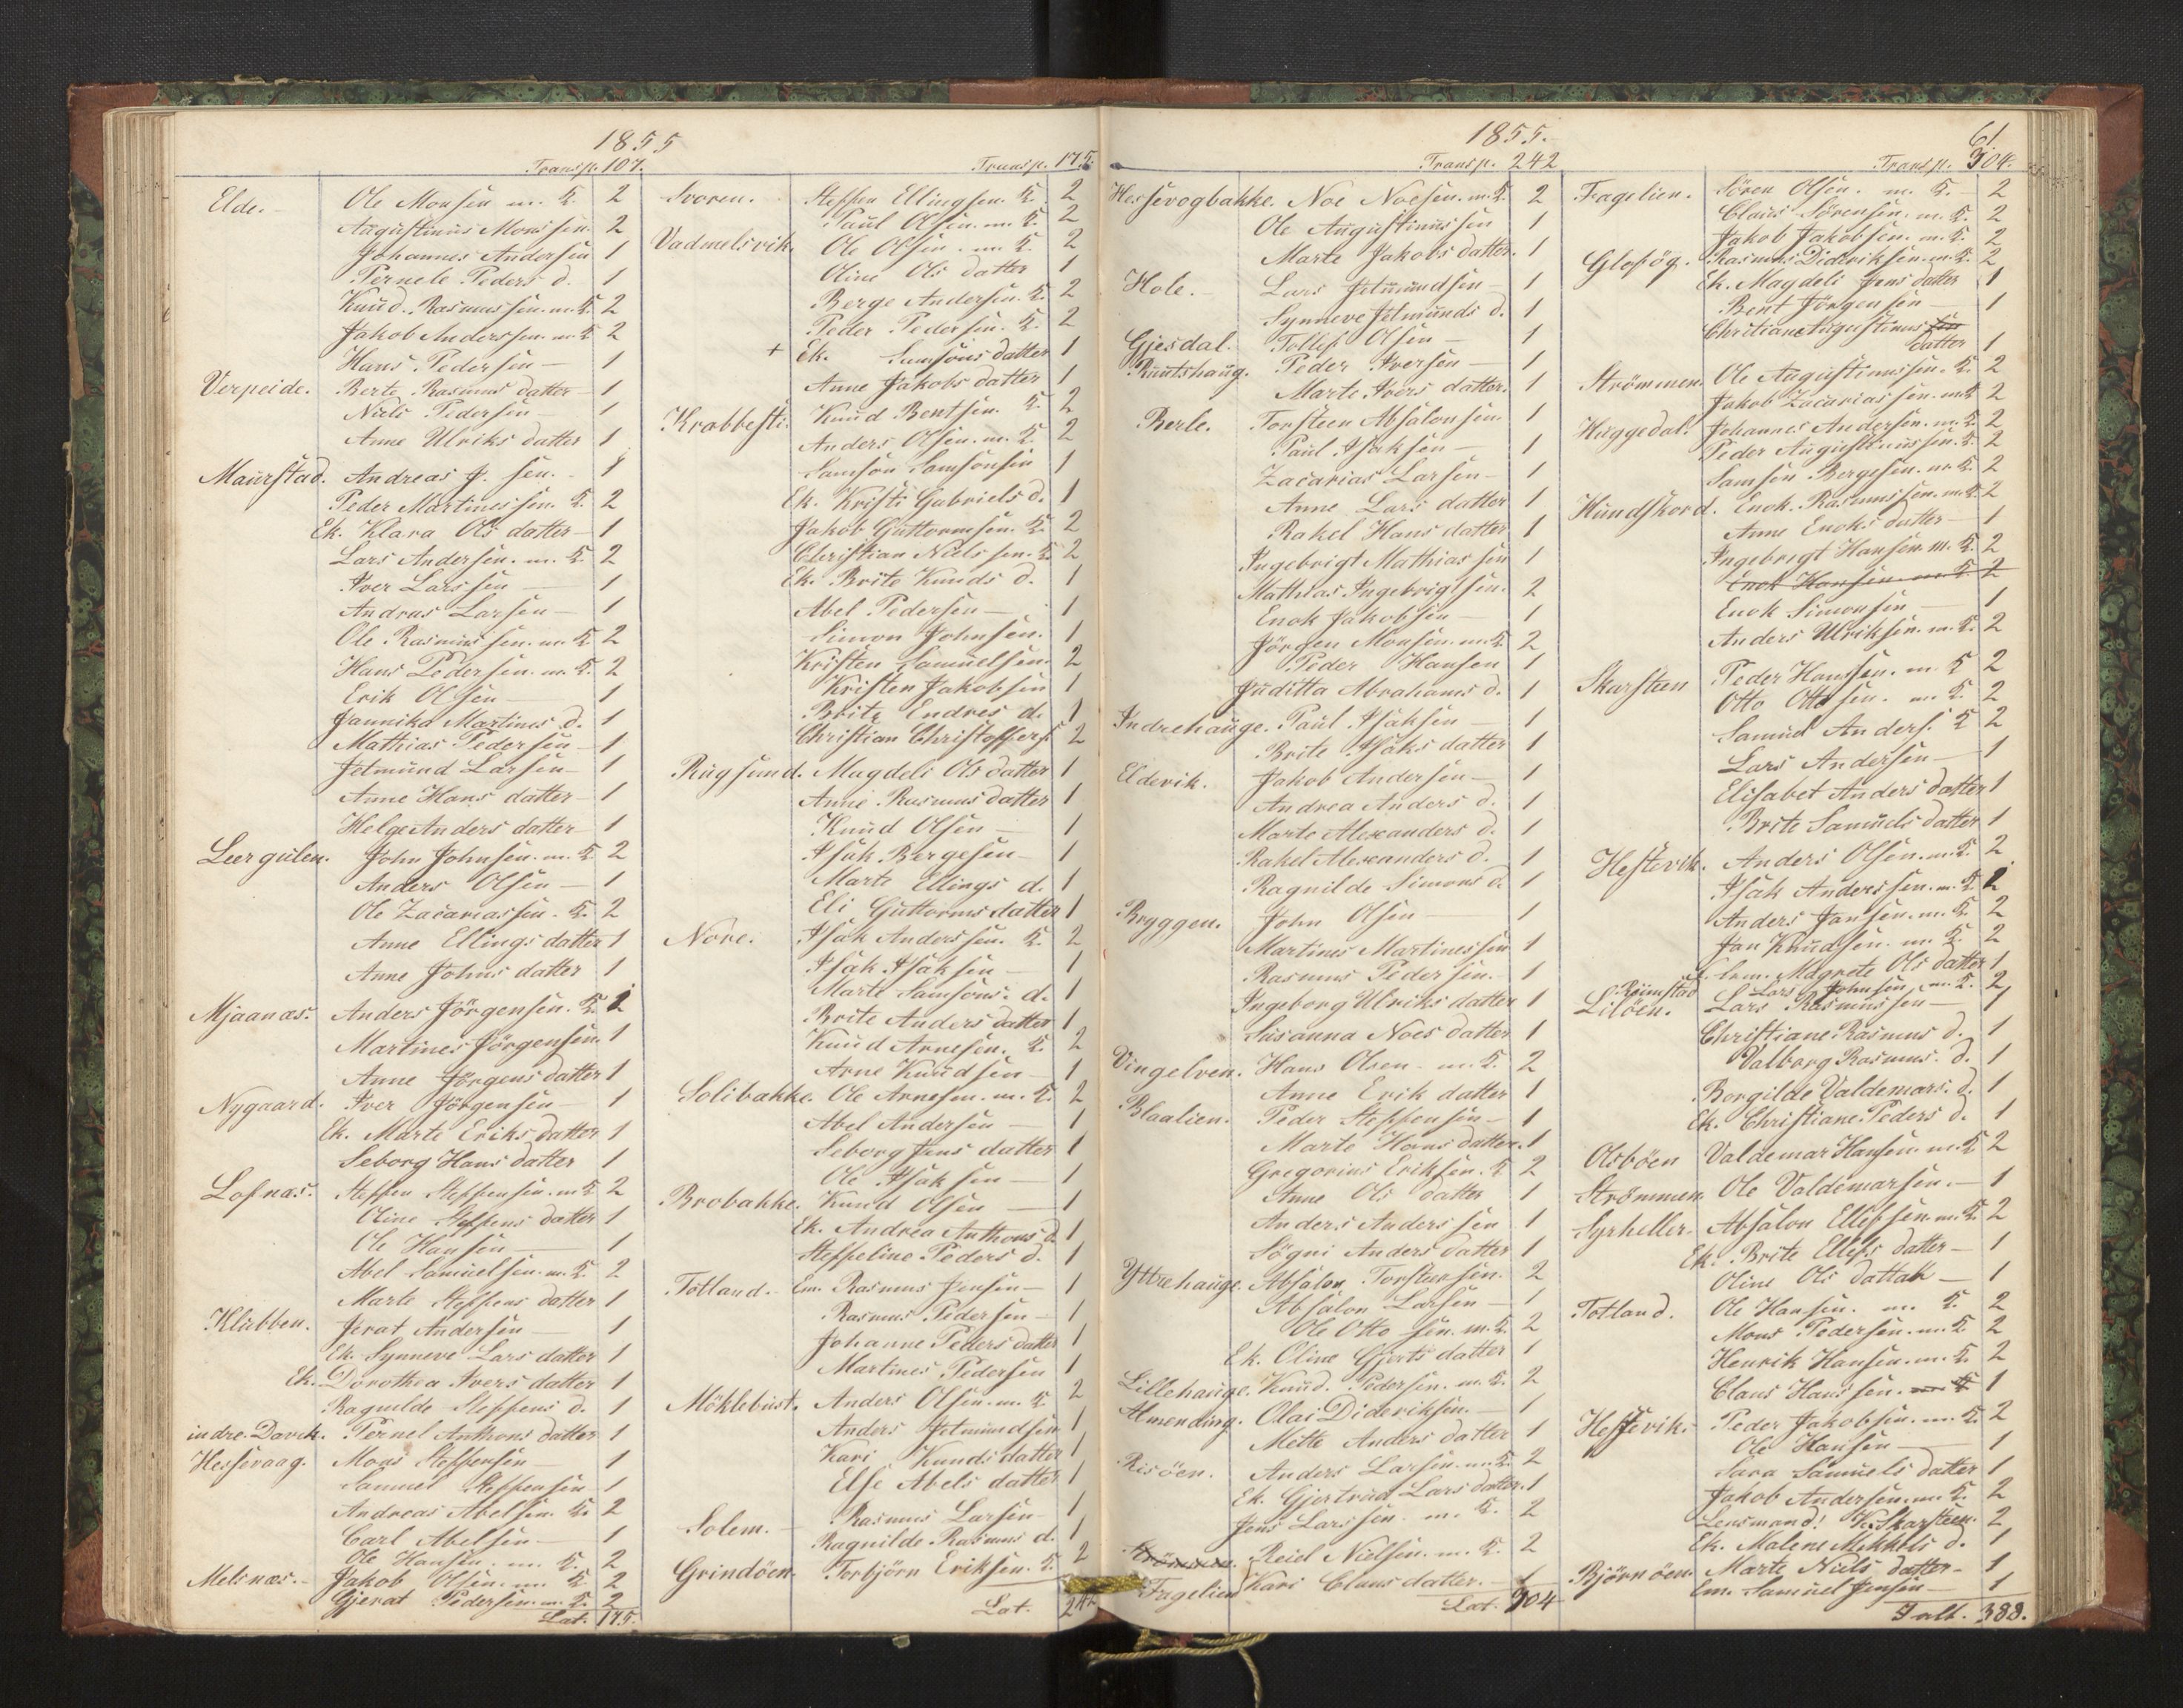 1855
Transp. 107.
Elde. Ole Monsen m. K. 2
Augustinus Monssen. 2
Johannes Andersen 1
Pernele Peders d. 1
Knud. Rasmussen. m. K. 2
Jakob Anderssen. m. K 2
Hans Pedersen 1
Verpeide. Berte Rasmus datter 1
Niels Pedersen 1
Anne Ulriks datter 1
Maurstad. Andreas J. sen. 1
Peder Martinessen. K. 2
Ek. Klara Ols datter 1
Lars Andersen. m. K. 2
Iver Larssen 1
Andreas Larsen 1
Ole Rasmussen. m. K. 2
Hans Pedersen. m. K. 2
Erik Olsen 1
Jannika Martines d. 1
Mathias Pedersen 1
Jetmund Larsen 1
Anne Hans datter 1
Helge Anders datter 1
Leergulen. John Johnsen. m. K 2
Anders Olsen 1
Ole Zacariassen. K. 2
Anne Ellings datter 1
Anne Johns datter 1
Mjaanæs. Anders Jörgensen. K. 2
Martines Jörgensen. 1
Anne Jörgens datter 1
Nygaard. Iver Jörgensen 1
Ek. Marte Eriks datter 1
Seborg Hans datter 1
Lofnæs. Steffen Steffensen. m. K 2
Oline Steffens datter 1
Ole Hansen 1
Abel Samuelsen. m. K. 2
Marte Steffens datter 1
Klubben. Jerat Andersen 1
Ek. Synneve Lars datter 1
Ek. Dorothea Ivers datter 1
Ragnilde Steffens d. 1
indre. Davik. Pernel Anthons datter 1
Hessevaag. Mons Steffensen 1
Samuel Steffensen 1
Andreas Abelsen. K. 2
Carl Abelsen 1
Ole Hansen. m. K. 2
Melsnæs. Jakob Olsen. m. K 2
Gjerat Pedersen. m. K. 2
Lat. 175.
Transp. 175.
Svoren. Steffen Ellingsen. K. 2
Paul Olsen. m. K. 2
Vadmelsvik. Ole Olsen. m. K. 2
Oline Ols datter 1
Berge Andersen. K. 2
Peder Pedersen. K. 2
+ Ek. Samsons datter 1
Anne Jakobs datter 1
Krabbesti. Knud Bentsen. K. 2
Anders Olsen. m. K. 2
Samson Samsonsen 1
Ek. Kristi Gabriels d. 1
Jakob Guttormsen. K. 2
Christian Nielssen. K. 2
Ek. Brite Knuds d. 1
Abel Pedersen 1
Simon Johnsen. 1
Kristen Samuelsen. 2
Kristen Jakobsen 1
Brite Endres d. 1
Christian Christoffers 2
Rugsund. Magdeli Ols datter 1
Anne Rasmus datter 1
Knud Olsen 1
Isak Bergesen 1
Marte Ellings d. 1
Eli Guttorms datter 1
Nore. Isak Anderssen. K. 2
Isak Isaksen 1
Marte Samsons. d. 1
Brite Anders datter 1
Knud Arnesen. K. 2
Arne Knudsen 1
Solibakke. Ole Arnesen. m. K. 2
Abel Andersen 1
Seborg Jens datter 1
Ole Isaksen 1
Brobakke. Knud Olsen 1
Ek. Andrea Anthons d. 1
Steffeline Peders d. 1
Totland. Em. Rasmus Jensen 1
Rasmus Pedersen 1
Johanne Peders datter 1
Martines Pedersen 1
Möklebust. Anders Olsen. m. K 2
Anders Jetmundsen 1
Kari Knuds datter 1
Else Abels datter 1
Solem. Rasmus Larsen 1
Ragnilde Rasmus d. 1
Grindöen. Torbjörn Eriksen. K. 2
Lat. 242
1855.
61
Transp. 242
Hessevogbakke. Noe Noesen. m. K. 2
Ole Augustinussen 1
Marte Jakobs datter. 1
Hole. Lars Jetmundsen 1
Synneve Jetmunds d. 1
Gjesdal. Tollef Olsen 1
Ruutshaug. Peder Iversen 1
Marte Ivers datter. 1
Berle. Torsteen Absalonsen 1
Paul Isaksen 1
Zacarias Larsen 1
Anne Lars datter 1
Rakel Hans datter 1
Ingebrigt Mathiassen 1
Mathias Ingebrigtsen. 2
Enok Jakobsen 1
Jörgen Monsen. m. K. 2
Peder Hansen 1
Juditta Abrahams d. 1
Indrehauge. Paul Isaksen 1
Brite Isaks datter 1
Elderik. Jakob Andersen 1
Andrea Anders d. 1
Marte Alexanders d. 1
Rakel Alexanders d. 1
Ragnilde Simons d. 1
Bryggen. John Olsen 1
Martines Martinessen 1
Rasmus Pedersen. 1
Ingeborg Ulriks datter 1
Susanna Noes datter 1
Vingelven. Hans Olsen. m. K. 2
Anne Erik datter 1
Blaalien. Peder Steffensen 1
Marte Hans datter. 1
Gregorius Eriksen. K 2
Anne Ols datter 1
Anders Anderssen 1
Sögni Anders datter 1
Yttrehauge. Absalon Torsteensen. 2
Absalon Larsen 1
Ole Otto sen. m. K. 2
Ek. Oline Gjerts datter 1
Lillehauge. Knud. Pedersen. m. K. 2
Almending. Olai Dideriksen. 1
Mette Anders datter 1
Risöen. Anders Larsen. m. K. 2
Ek. Gjertrud Lars datter. 1
Jens Larssen. m. K. 2
Strömmen. Reiel Nielsen. m. K. 2
Fagelien Kari Claus datter. 1
Lat. 304
Transp. 304.
Fagelien. Sören Olsen. m. K. 2
Claus Sörensen. m. K. 2
Jakob Jakobsen. m. K. 2
Glosög. Rasmus Dideriksen. m. K. 2
Ek. Magdeli Jens datter 1
Bent Jörgensen 1
Christiane Augustinus sen
datter 1
Strömmen. Ole Augustinussen. K. 2
Jakob Zacariassen. m. K 2
Huggedal. Johannes Andersen. m. K. 2
Peder Augustinussen. K. 2
Samson Bergesen. m. K. 2
Hundskord. Enok. Rasmussen. m. K. 2
Anne Enoks datter 1
Ingebrigt Hansen. m. K. 2
Enok Hansen. m. K. 2
Enok Simonsen 1
Anders Ulriksen. m. K. 2
Skarsteen Peder Hanssen. m. K 2
Otto Ottosen. m. K. 2
Samuel Anders. K 2
Lars Andersen 1
Elisabet Anders datter 1
Brite Samuels datter 1
Hestevik. Anders Olsen. m. K. 2
Isak Anderssen. m. K. 2
Anders Jansen. m. K. 2
Jan Knudsen. m. K. 2
Em. Magrete Ols datter 1
Rimstad Lars Johnsen. m. K. 2
Lilöen. Lars Rasmussen 1
Christiane Rasmus d. 1
Valborg Rasmus. d. 1
Borgilde Valdemars. d. 1
Ek. Christiane Peders d. 1
Osböen Valdemar Hansen. m. K 2
Strömmen. Ole Valdemarsen. 1
Syrheller. Absalon Ellefsen. m. K. 2
Ek. Brite Ellefs datter 1
Oline Ols dattah 1
Totland. Ole Hansen. m. K. 2
Mons Pedersen. m. K. 2
Henrik Hansen. m. K. 2
Claus Hanssen. m. K 1
Hessevik. Peder Jakobsen. m. K. 2
Ole Hansen 1
Sara Samuels datter 1
Jakob Andersen. m. K. 2
Lensmand! K. Skarsteen. 2
Ek. Malene Mekkels d. 1
Björnöen. Marte Niels datter 1
Em. Samuel Jensen 1
Talt. 388.